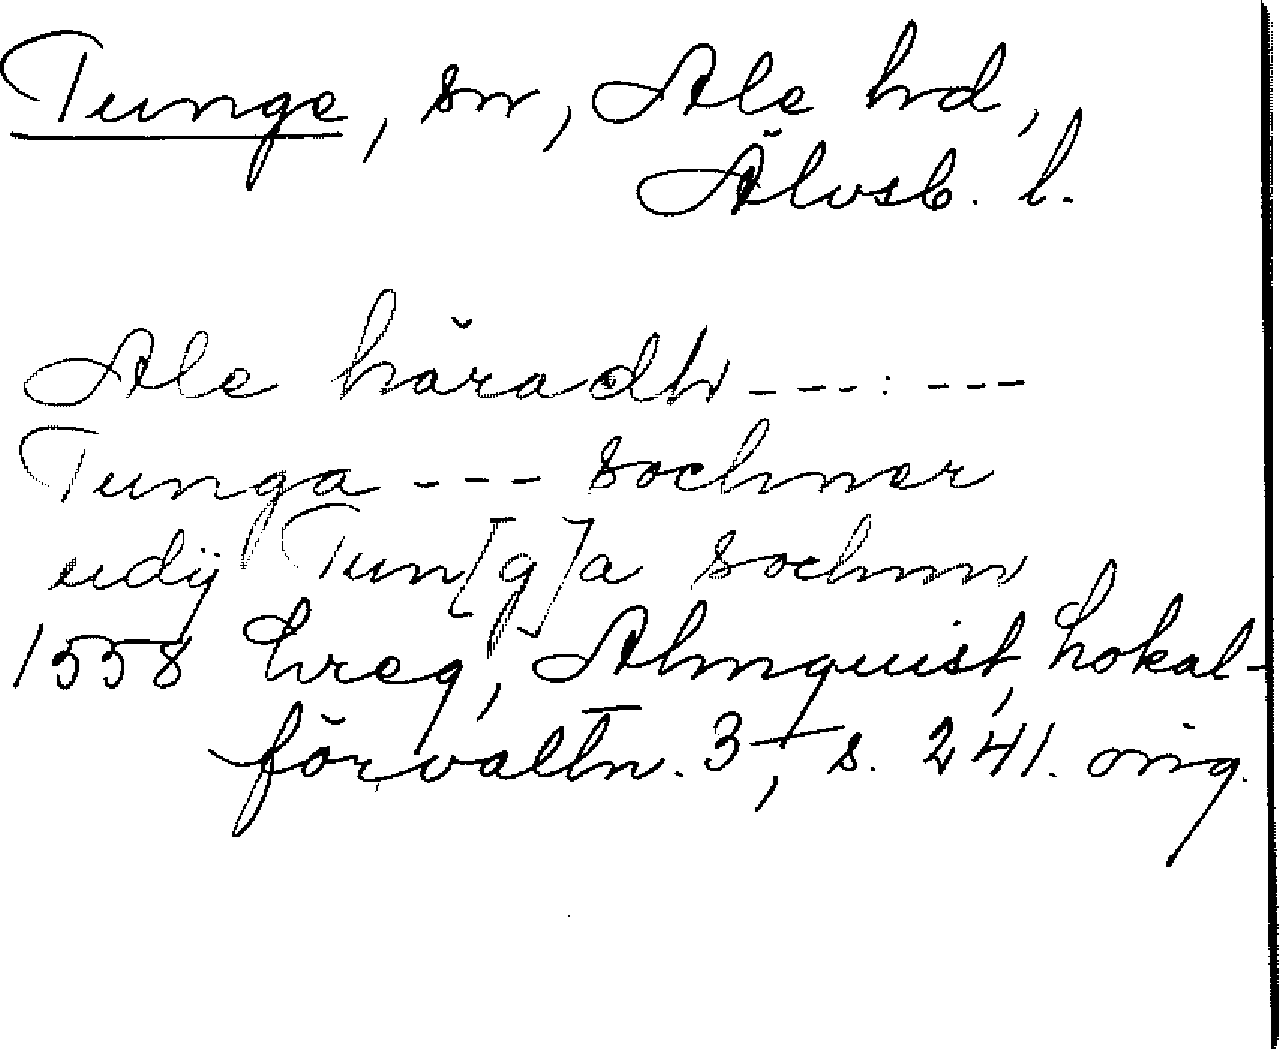 Tunge, sn, Ale hd,
Älvsb. l.
Ale häradh ---:---
Tunga --- sochner
udÿ Tun[g]a sochnn
1558 hreg, Almquist, Lokal-
förvaltn. 3, s. 241. orig.